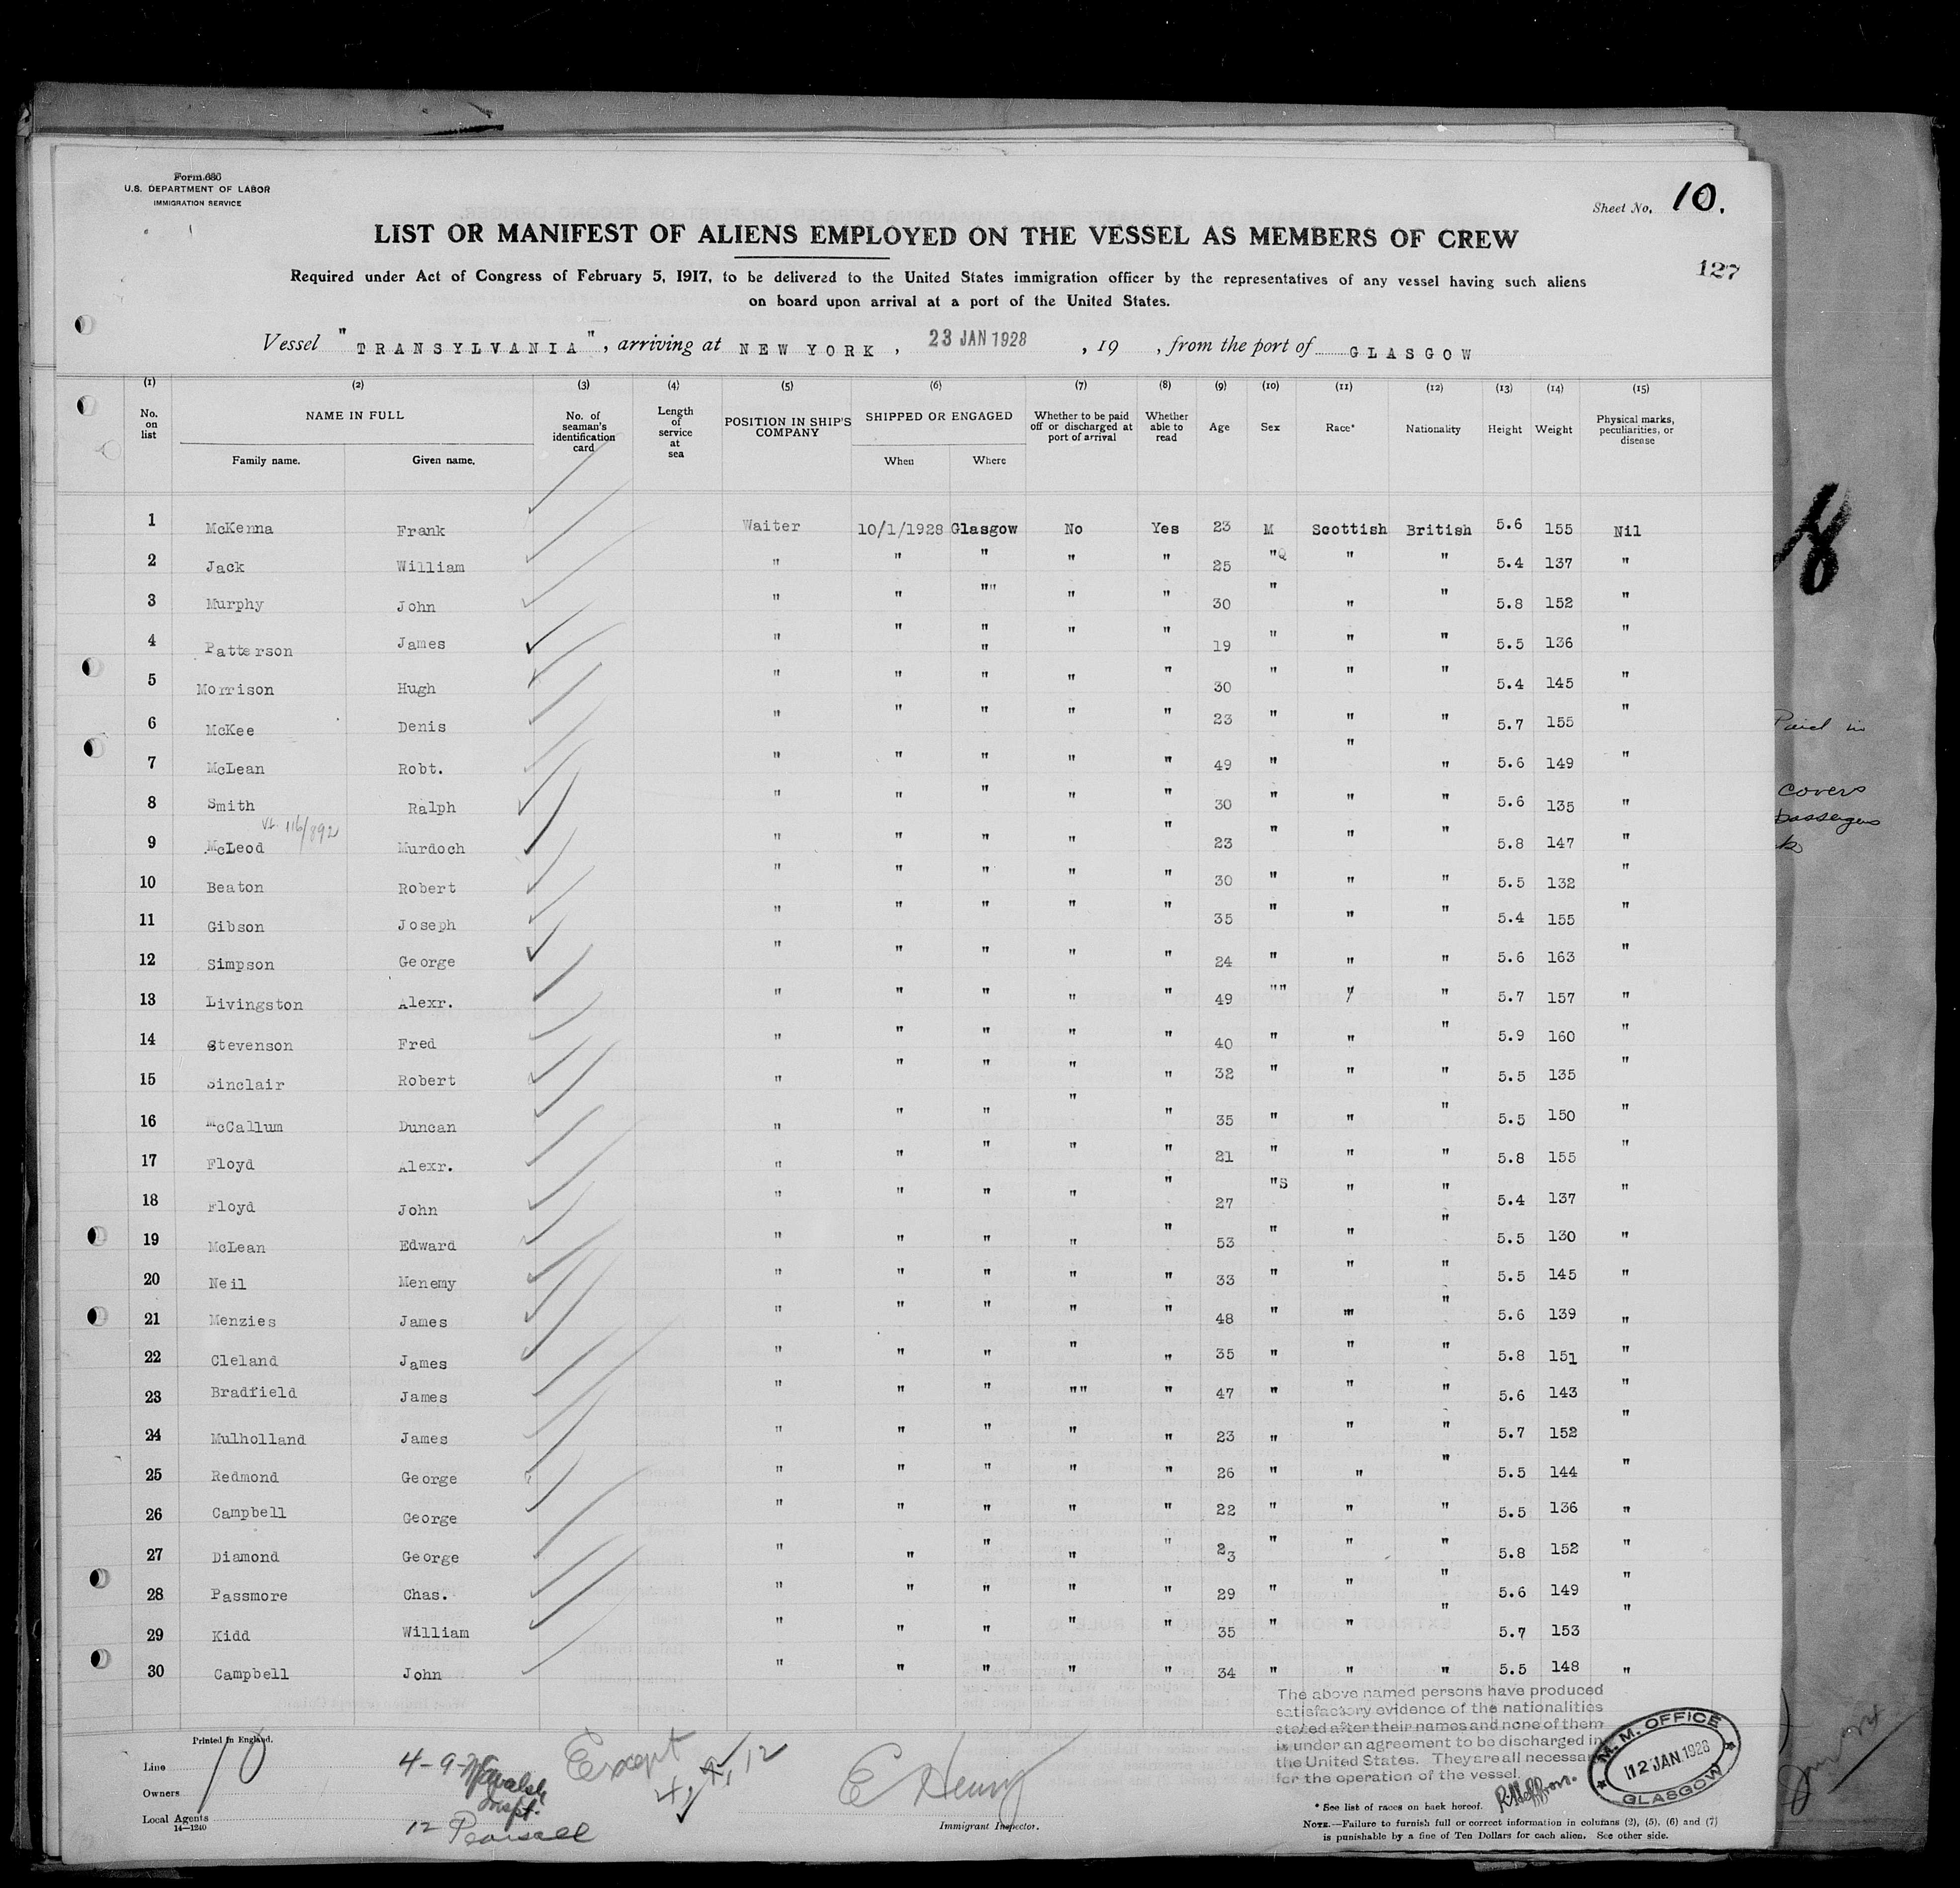 Form 680
U.S. DEPARTMENT OF LABOR
IMMIGRATION SERVICE
Sheet No. 10.
LIST OR MANIFEST OF ALIENS EMPLOYED ON THE VESSEL AS MEMBERS OF CREW
127
Required under Act of Congress of February 5, 1917, to be delivered to the United States immigration officer by the representatives of any vessel having such aliens
on board upon arrival at a port of the United States.
Vessel "TRANSYLVANIA", arriving at NEW YORK, 23 JAN 1928, 19 , from the port of GLASGOW
(1) (2) (3) (4) (5) (6) (7) (8) (9) (10) (11) (12) (13) (14) (15)
No. on list NAME IN FULL Family name. Given name. No. of seaman's identification card Length of service at sea POSITION IN SHIP'S COMPANY SHIPPED OR ENGAGED When Where Whether to be paid off or discharged at port of arrival Whether able to read Age Sex Race* Nationality Height Weight Physical marks, peculiarities, or disease
1 McKenna Frank Waiter 10/1/1928 Glasgow No Yes 23 M Scottish British 5.6 155 Nil
2 Jack William " " " " " 25 "Q " " 5.4 137 "
3 Murphy John " " "" " " 30 " " " 5.8 152 "
4 Patterson James " " " " " 19 " " " 5.5 136 "
5 Morrison Hugh " " " " " 30 " " " 5.4 145 "
6 McKee Denis " " " " " 23 " " " 5.7 155 "
7 McLean Robt. " " " " " 49 " " " 5.6 149 "
8 Smith Ralph " " " " " 30 " " " 5.6 135 "
116/892
9 McLeod Murdoch " " " " " 23 " " " 5.8 147 "
10 Beaton Robert " " " " " 30 " " " 5.5 132 "
11 Gibson Joseph " " " " " 35 " " " 5.4 155 "
12 Simpson George " " " " " 24 " " " 5.6 163 "
13 Livingston Alexr. " " " " " 49 "" " " 5.7 157 "
14 Stevenson Fred " " " " " 40 " " " 5.9 160 "
15 Sinclair Robert " " " " " 32 " " " 5.5 135 "
16 McCallum Duncan " " " " " 35 " " " 5.5 150 "
17 Floyd Alexr. " " " " " 21 " " " 5.8 155 "
18 Floyd John " " " " " 27 "S " " 5.4 137 "
19 McLean Edward " " " " " 53 " " " 5.5 130 "
20 Neil Menemy " " " " " 33 " " " 5.5 145 "
21 Menzies James " " " " " 48 " " " 5.6 139 "
22 Cleland James " " " " " 35 " " " 5.8 151 "
23 Bradfield James " " " "" " 47 " " " 5.6 143 "
24 Mulholland James " " " " " 23 " " " 5.7 152 "
25 Redmond George " " " " " 26 " " " 5.5 144 "
26 Campbell George " " " " " 22 " " " 5.5 136 "
27 Diamond George " " " " " 23 " " " 5.8 152 "
28 Passmore Chas. " " " " " 29 " " " 5.6 149 "
29 Kidd William " " " " " 35 " " " 5.7 153 "
30 Campbell John " " " " " 34 " " " 5.5 148 "
The above named persons have produced
satisfactory evidence of the nationalities
stated after their names and none of them
is under an agreement to be discharged in
the United States. They are all necessary
for the operation of the vessel.
M. M. OFFICE
12 JAN. 1928
GLASGOW
Printed in England.
10
Line
Owners
Local Agents
14—1240
4-9- Walsh
Inspt.
12 Pearsall
Except
4, 9, 12
E Henry
Immigrant Inspector.
* See list of races on back hereof.
NOTE.—Failure to furnish full or correct information in columns (2), (5), (6) and (7)
is punishable by a fine of Ten Dollars for each alien. See other side.
Paid in
covers
passengers